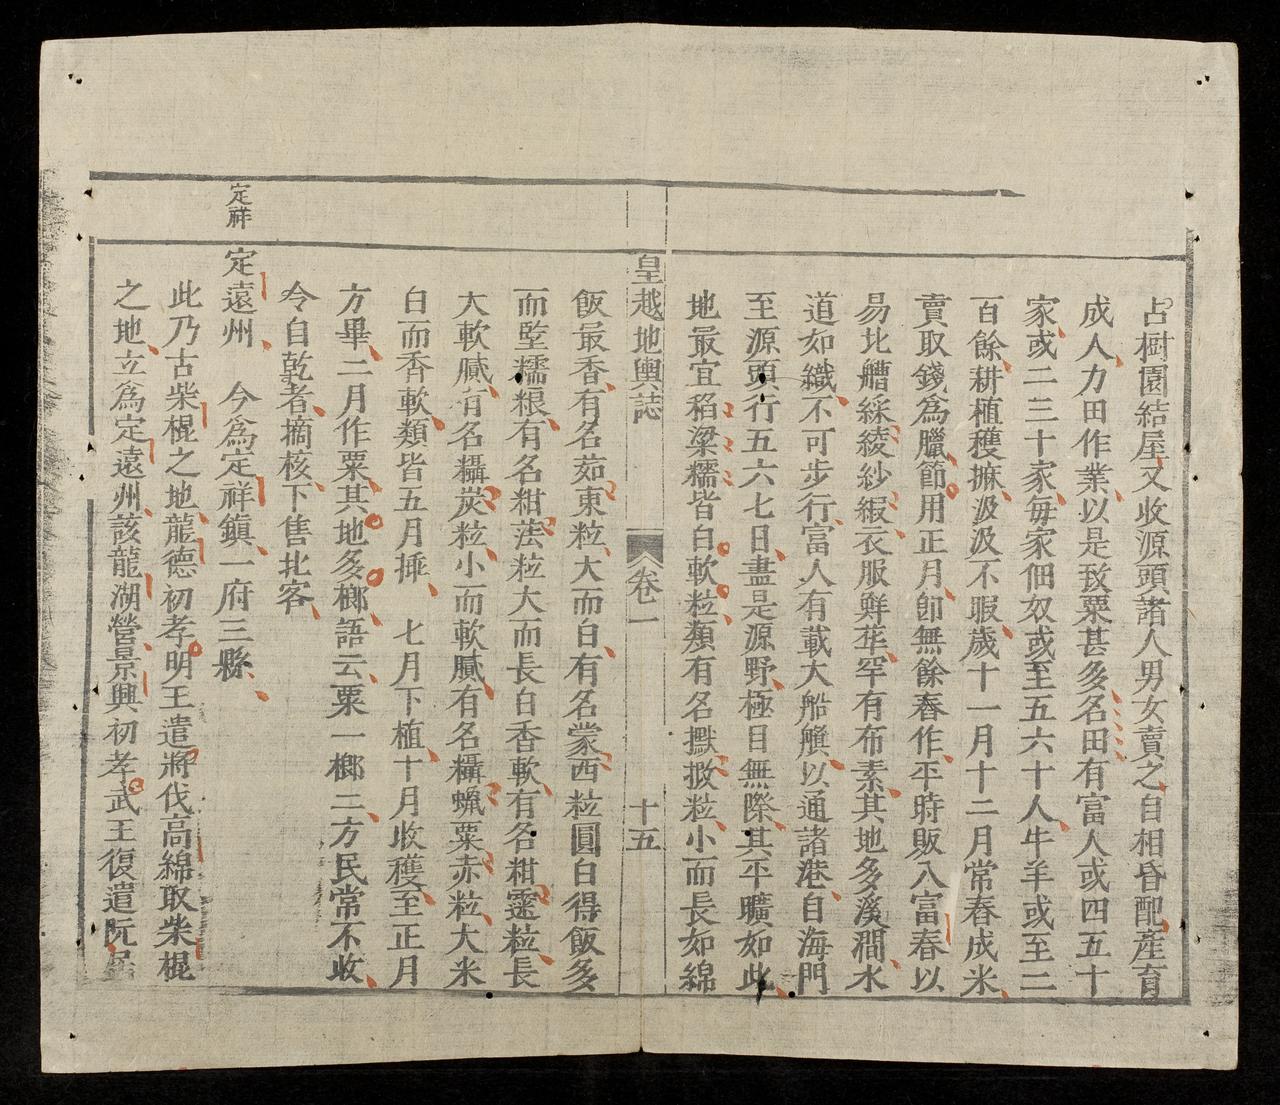 占樹園結屋又收源頭諸人男女賣之自相昏配産育
成人力田作業以是致粟甚多名田有富人或四五十
家或二三十家毎家佃奴或至五六十人牛羊或至二
百餘耕植穫擵汲汲不暇歳十一月十二月常舂成米
賣取錢為臘節用正月卽無餘舂作平時販入富春以
易北艚綵綾紗緞衣服鮮華罕有布素其地多溪澗水
道如織不可步行富人有載大船艤以通諸港自海門
至源頭行五六七日盡是源野極目無際其平曠如此
地最宜稻粱糯皆白軟粒䫫有名㩐㧊粒小而長如綿
皇越地輿誌 卷一 十五
飯最香有名茹東粒大而白有名蒙西粒圓白得飯多
而堅糯粮有名粓蓫粒大而長白香軟有名粓靈粒長
大軟膩有名欇炭粒小而軟膩有名欇蠟粟赤粒大米
白而香軟類皆五月揷 七月下植十月收穫至正月
方畢二月作粟其地多榔語云粟一榔二方民常不收
令自乾者摘核下售北客
定祥
定遠州 今為定祥鎮一府三縣
此乃古柴棍之地龍德初孝明王遣將伐高綿取柴棍
之地立為定遠州該龍湖營景興初孝武王復遣阮